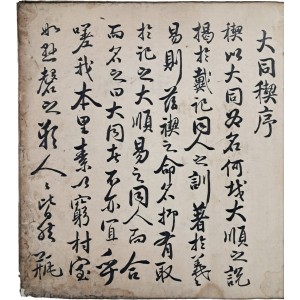 大同稧序
稧以大同爲名何哉大順之說
揭於戴記同人之訓著於羲
易則茲稧之命名抑有取
於記之大順易之同人而合
而名之曰大同者不亦宜乎
嗟我本里素以窮村室
如懸磬之歎人〻皆然瓶